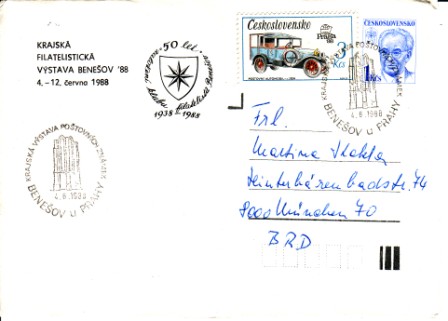 KRAJSKÁ
FILATELISTICKÁ
VÝSTAVA BENEŠOV '88
4.–12. června 1988
50 let
klubu filatelistů
1938 1988
Československo
Praga
88
3
Kčs
ČESKOSLOVENSKO
1Kčs
KRAJSKÁ VÝSTAVA POŠTOVNÍCH ZNÁMEK
4.6.1988
BENEŠOV u PRAHY
KRAJSKÁ VÝSTAVA POŠTOVNÍCH ZNÁMEK
4.6.1988
BENEŠOV u PRAHY
Frl.
Martina
Hinterbärenbadstr. 74
8000 München 70
BRD